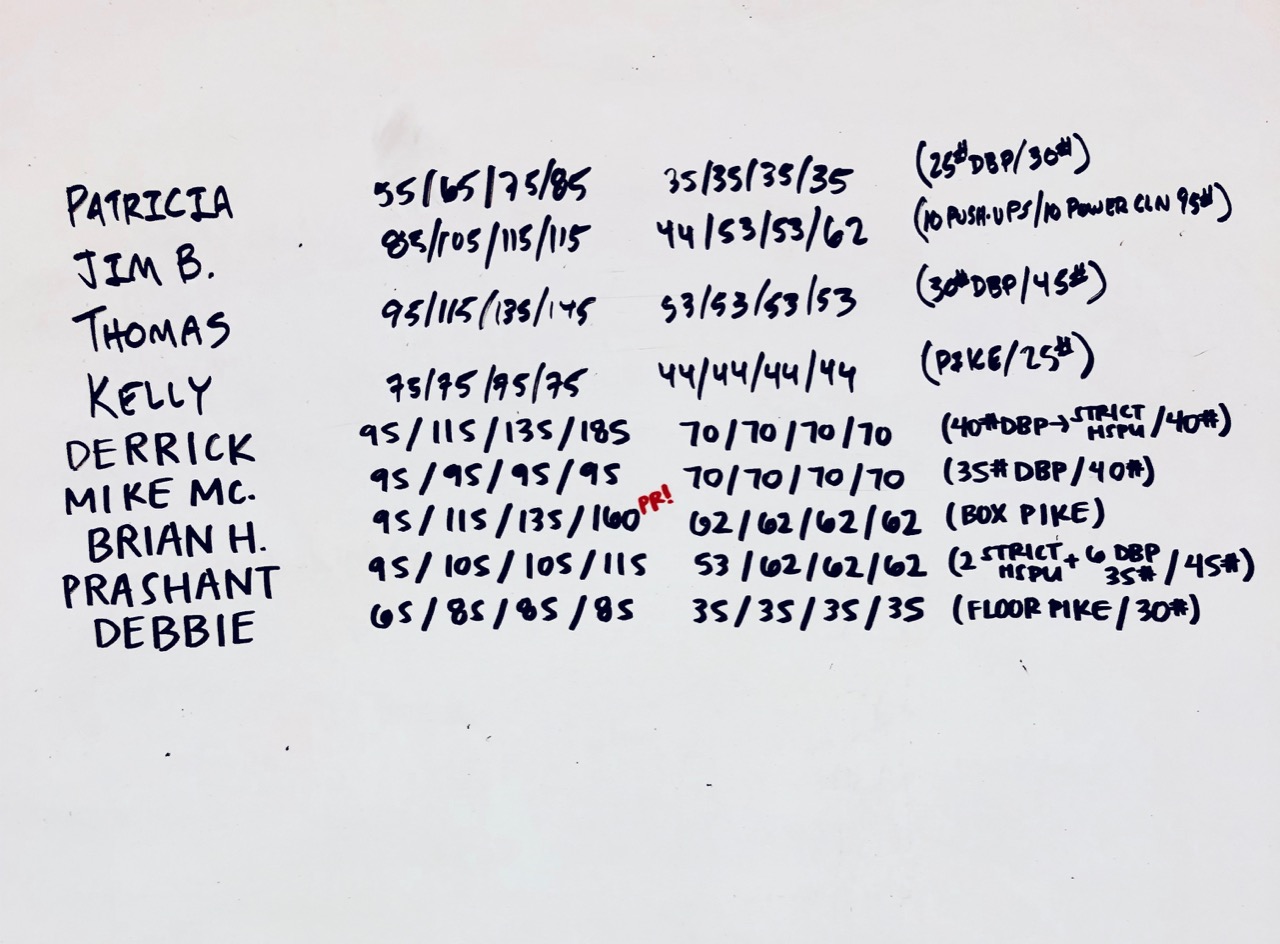 PATRICIA 55/65/75/85 35/35/35/35 (25# DBP/30#)
JIM B. 85/105/115/115 44/53/53/62 (10 PUSH-UPS/10 POWER CLN 95#)
THOMAS 95/115/135/145 53/53/53/53 (30# DBP/45#)
KELLY 75/75/95/75 44/44/44/44 (PIKE/25#)
DERRICK 95/115/135/185 70/70/70/70 (40# DBP→STRICT HSPU/40#)
MIKE MC. 95/95/95/95 70/70/70/70 (35# DBP/40#)
BRIAN H. 95/115/135/160 PR! 62/62/62/62 (BOX PIKE)
PRASHANT 95/105/105/115 53/62/62/62 (2 STRICT HSPU + 6 DBP 35#/45#)
DEBBIE 65/85/85/85 35/35/35/35 (FLOOR PIKE/30#)